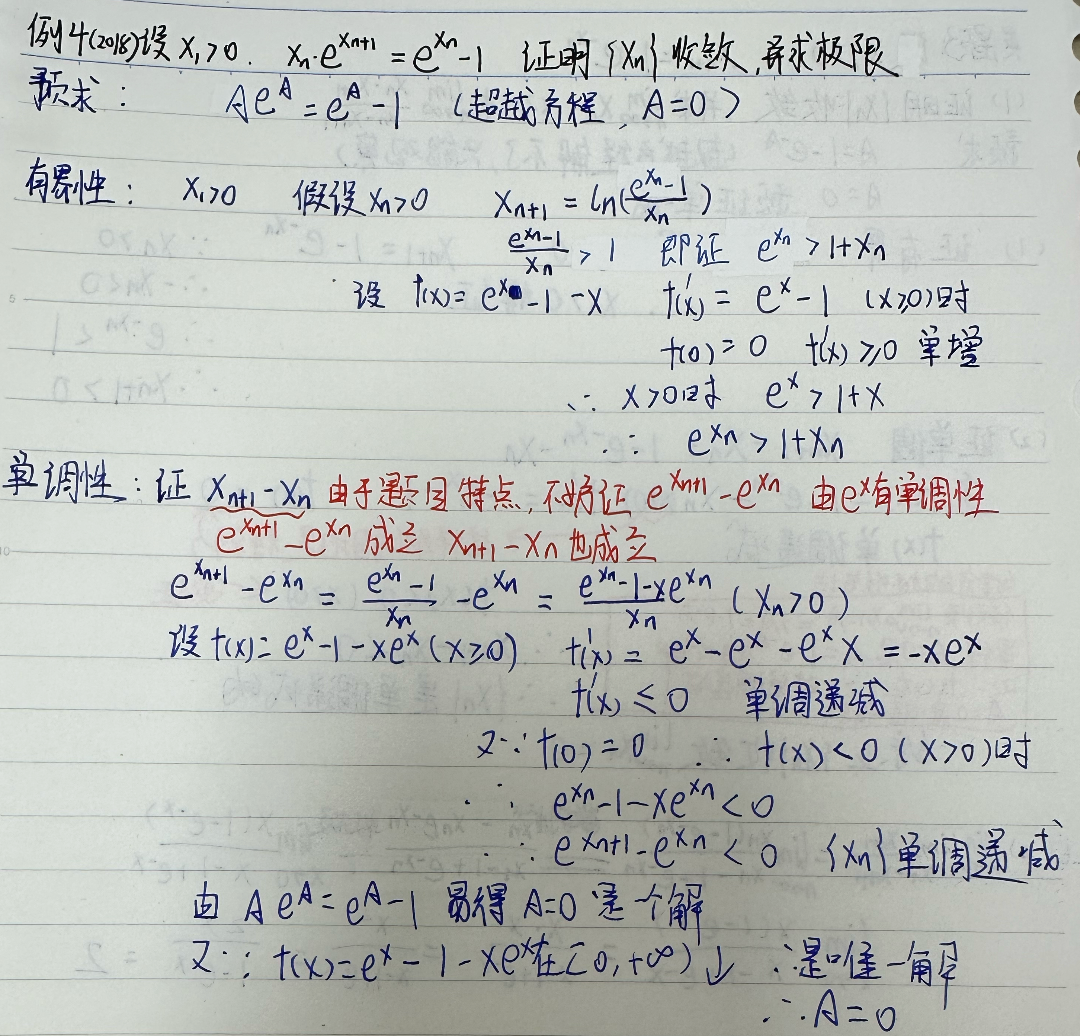 例4(2018)设 x₁>0. xₙ·e^{xₙ₊₁} = e^{xₙ}-1 证明{xₙ}收敛,并求极限
预求: Ae^A = e^A-1 (超越方程, A=0)
有界性: x₁>0 假设xₙ>0 xₙ₊₁ = ln(\frac{e^{xₙ}-1}{xₙ})
\frac{e^{xₙ}-1}{xₙ}>1 即证 e^{xₙ}>1+xₙ
设 f(x)= e^x-1-x f'(x) = e^x-1 (x≥0)时
f(0)=0 f'(x)≥0 单增
∴ x>0时 e^x>1+x
∴ e^{xₙ}>1+xₙ
单调性: 证 xₙ₊₁-xₙ 由于题目特点,不妨证 e^{xₙ₊₁}-e^{xₙ} 由e^x有单调性
e^{xₙ₊₁}-e^{xₙ}成立 xₙ₊₁-xₙ也成立
e^{xₙ₊₁}-e^{xₙ} = \frac{e^{xₙ}-1}{xₙ}-e^{xₙ} = \frac{e^{xₙ}-1-xe^{xₙ}}{xₙ} (xₙ>0)
设f(x)=e^x-1-xe^x(x≥0) f'(x) = e^x-e^x-e^x x =-xe^x
f'(x)≤0 单调递减
又∵f(0)=0 ∴ f(x)<0 (x>0)时
∴ e^{xₙ}-1-xe^{xₙ}<0
∴ e^{xₙ₊₁}-e^{xₙ}<0 {xₙ}单调递减
由 Ae^A=e^A-1 易得 A=0 是一个解
又∵ f(x)=e^x-1-xe^x在[0,+∞)↓ ∴是唯一解
∴A=0